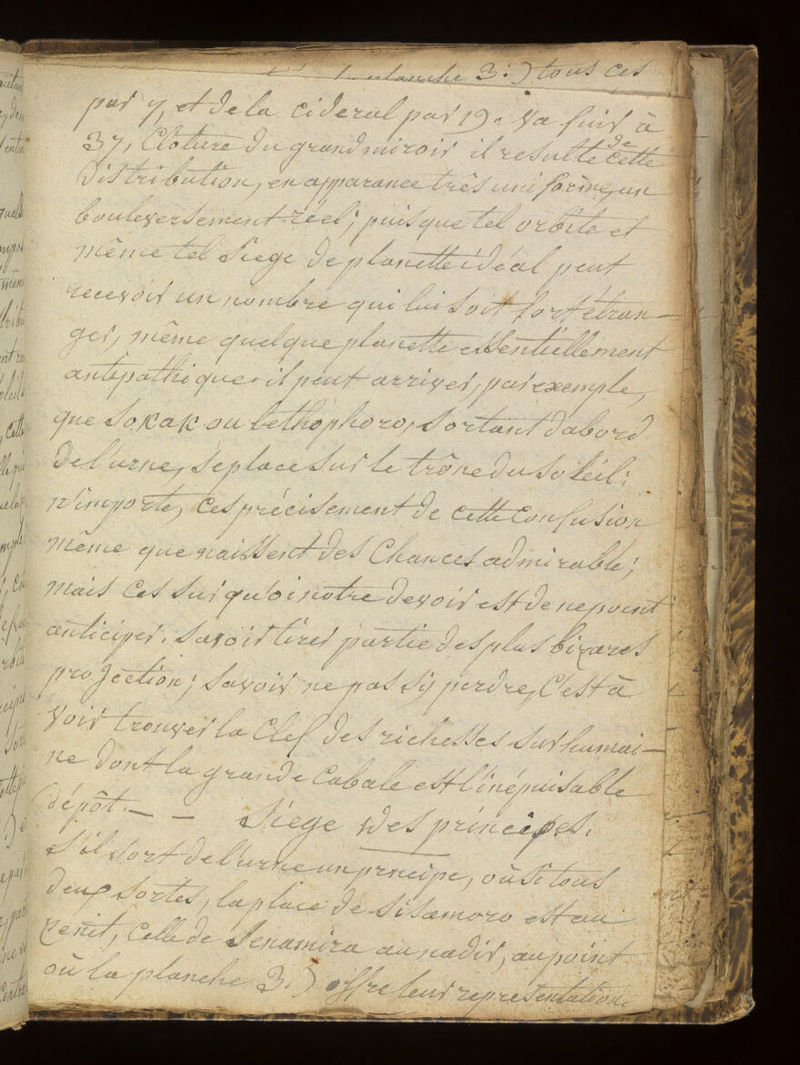 planche 3:) tous ces
par 7, et de la cideral par 19. va finir à
37, Cloture du grand miroir il resulte de cette
Distribution, en apparance très uniforme, un
bouleversement réel; puisque tel orbite et
même tel Siege de planette idéal peut
recevoir un nombre qui lui soit fort étran-
ger, même quelque planette essentiellement
antipathique. il peut arriver, par exemple,
que Sokak ou Lethophoro, Sortant d'abord
de l'urne, Se place Sur le trône du Soleil:
n'importe, Ces précisement de cette Confusion
même que naissent des Chances admirable;
mais Ces Sur quoi notre devoir est de ne point
anticiper. Savoir tirer partie des plus bizares
projection; Savoir ne pas S'y perdre, C'est à
voir trouver la Clef des richesses Surhumai-
ne dont la grande Cabale est l'inépuisable
dépôt. — — Siege des principes.
S'il Sort de l'urne un principe, où Si tous
deux Sortes, la place de Sisamoro est au
Zenit, Celle de Senamira au nadir, au point
où la planche 3.) offre leur representation